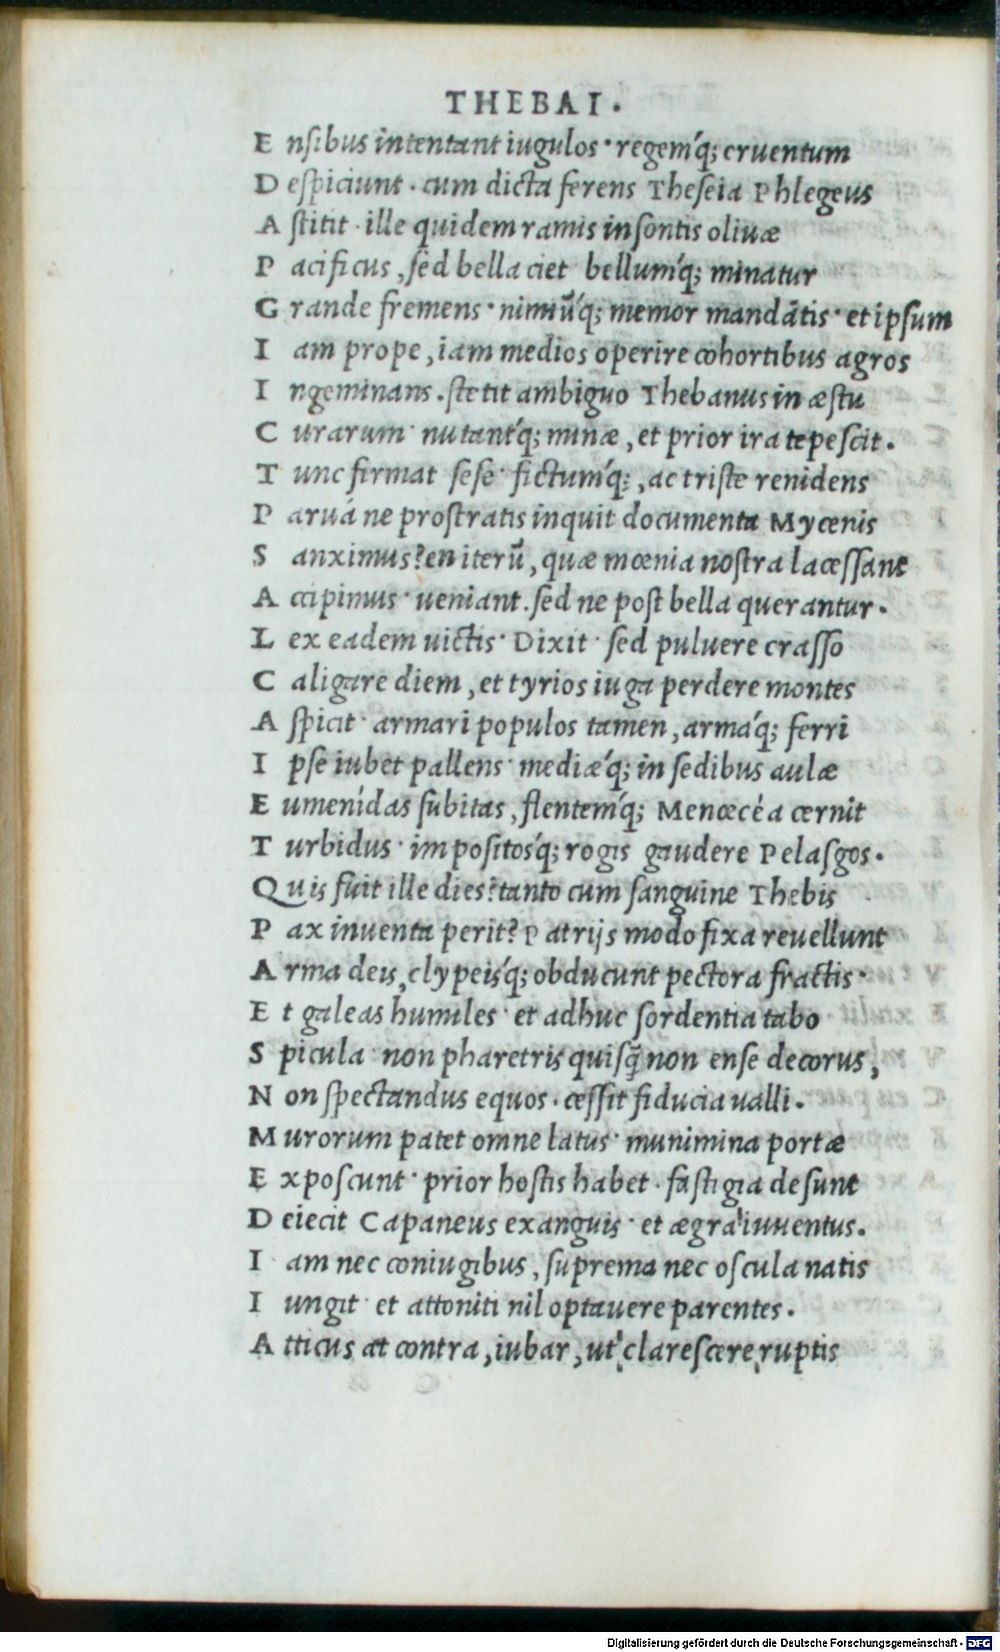 THEBAI.
E nſibus intentant iugulos · regemq́; cruentum
D eſpiciunt · cum dicta ferens Theſeia Phlegeus
A ſtitit · ille quidem ramis inſontis oliuæ
P acificus, ſed bella ciet bellumq́; minatur
G rande fremens · nimiũq́; memor mandãtis · et ipſum
I am prope, iam medios operire cohortibus agros
I ngeminans. ſtetit ambiguo Thebanus in æſtu
C urarum · nutantq́; minæ, et prior ira tepeſcit.
T unc firmat ſeſe · fictumq́;, ac triſte renidens
P aruá ne proſtratis inquit documenta Mycenis
S anximus? en iterũ, quæ mœnia noſtra laceſſant
A ccipimus · ueniant. ſed ne poſt bella querantur.
L ex eadem uictis · Dixit · ſed puluere craſſo
C aligare diem, et tyrios iuga perdere montes
A ſpicit · armari populos tamen, armaq́; ferri
I pſe iubet pallens · mediæq́; in ſedibus aulæ
E umenídas ſubitas, flentemq́; Menœcéa cernit
T urbidus · impoſitosq́; rogis gaudere Pelaſgos.
Quis fuit ille dies? tanto cum ſanguine Thebis
P ax inuenta perit? Patrijs modo fixa reuellunt
A rma deis, clypeisq́; obducunt pectora fractis ·
E t galeas humiles · et adhuc ſordentia tabo
S picula · non pharetris quiſq̃ non enſe decorus,
N on ſpectandus equos. ceſſit fiducia ualli.
M urorum patet omne latus · munimina portæ
E xpoſcunt · prior hoſtis habet. faſtigia deſunt
D eiecit Capaneus exanguis · et ægra iuuentus.
I am nec coniugibus, ſuprema nec oſcula natis
I ungit · et attoniti nil optauere parentes.
A tticus at contra, iubar, ut clareſcere ruptis
Digitalisierung gefördert durch die Deutsche Forschungsgemeinschaft - DFG